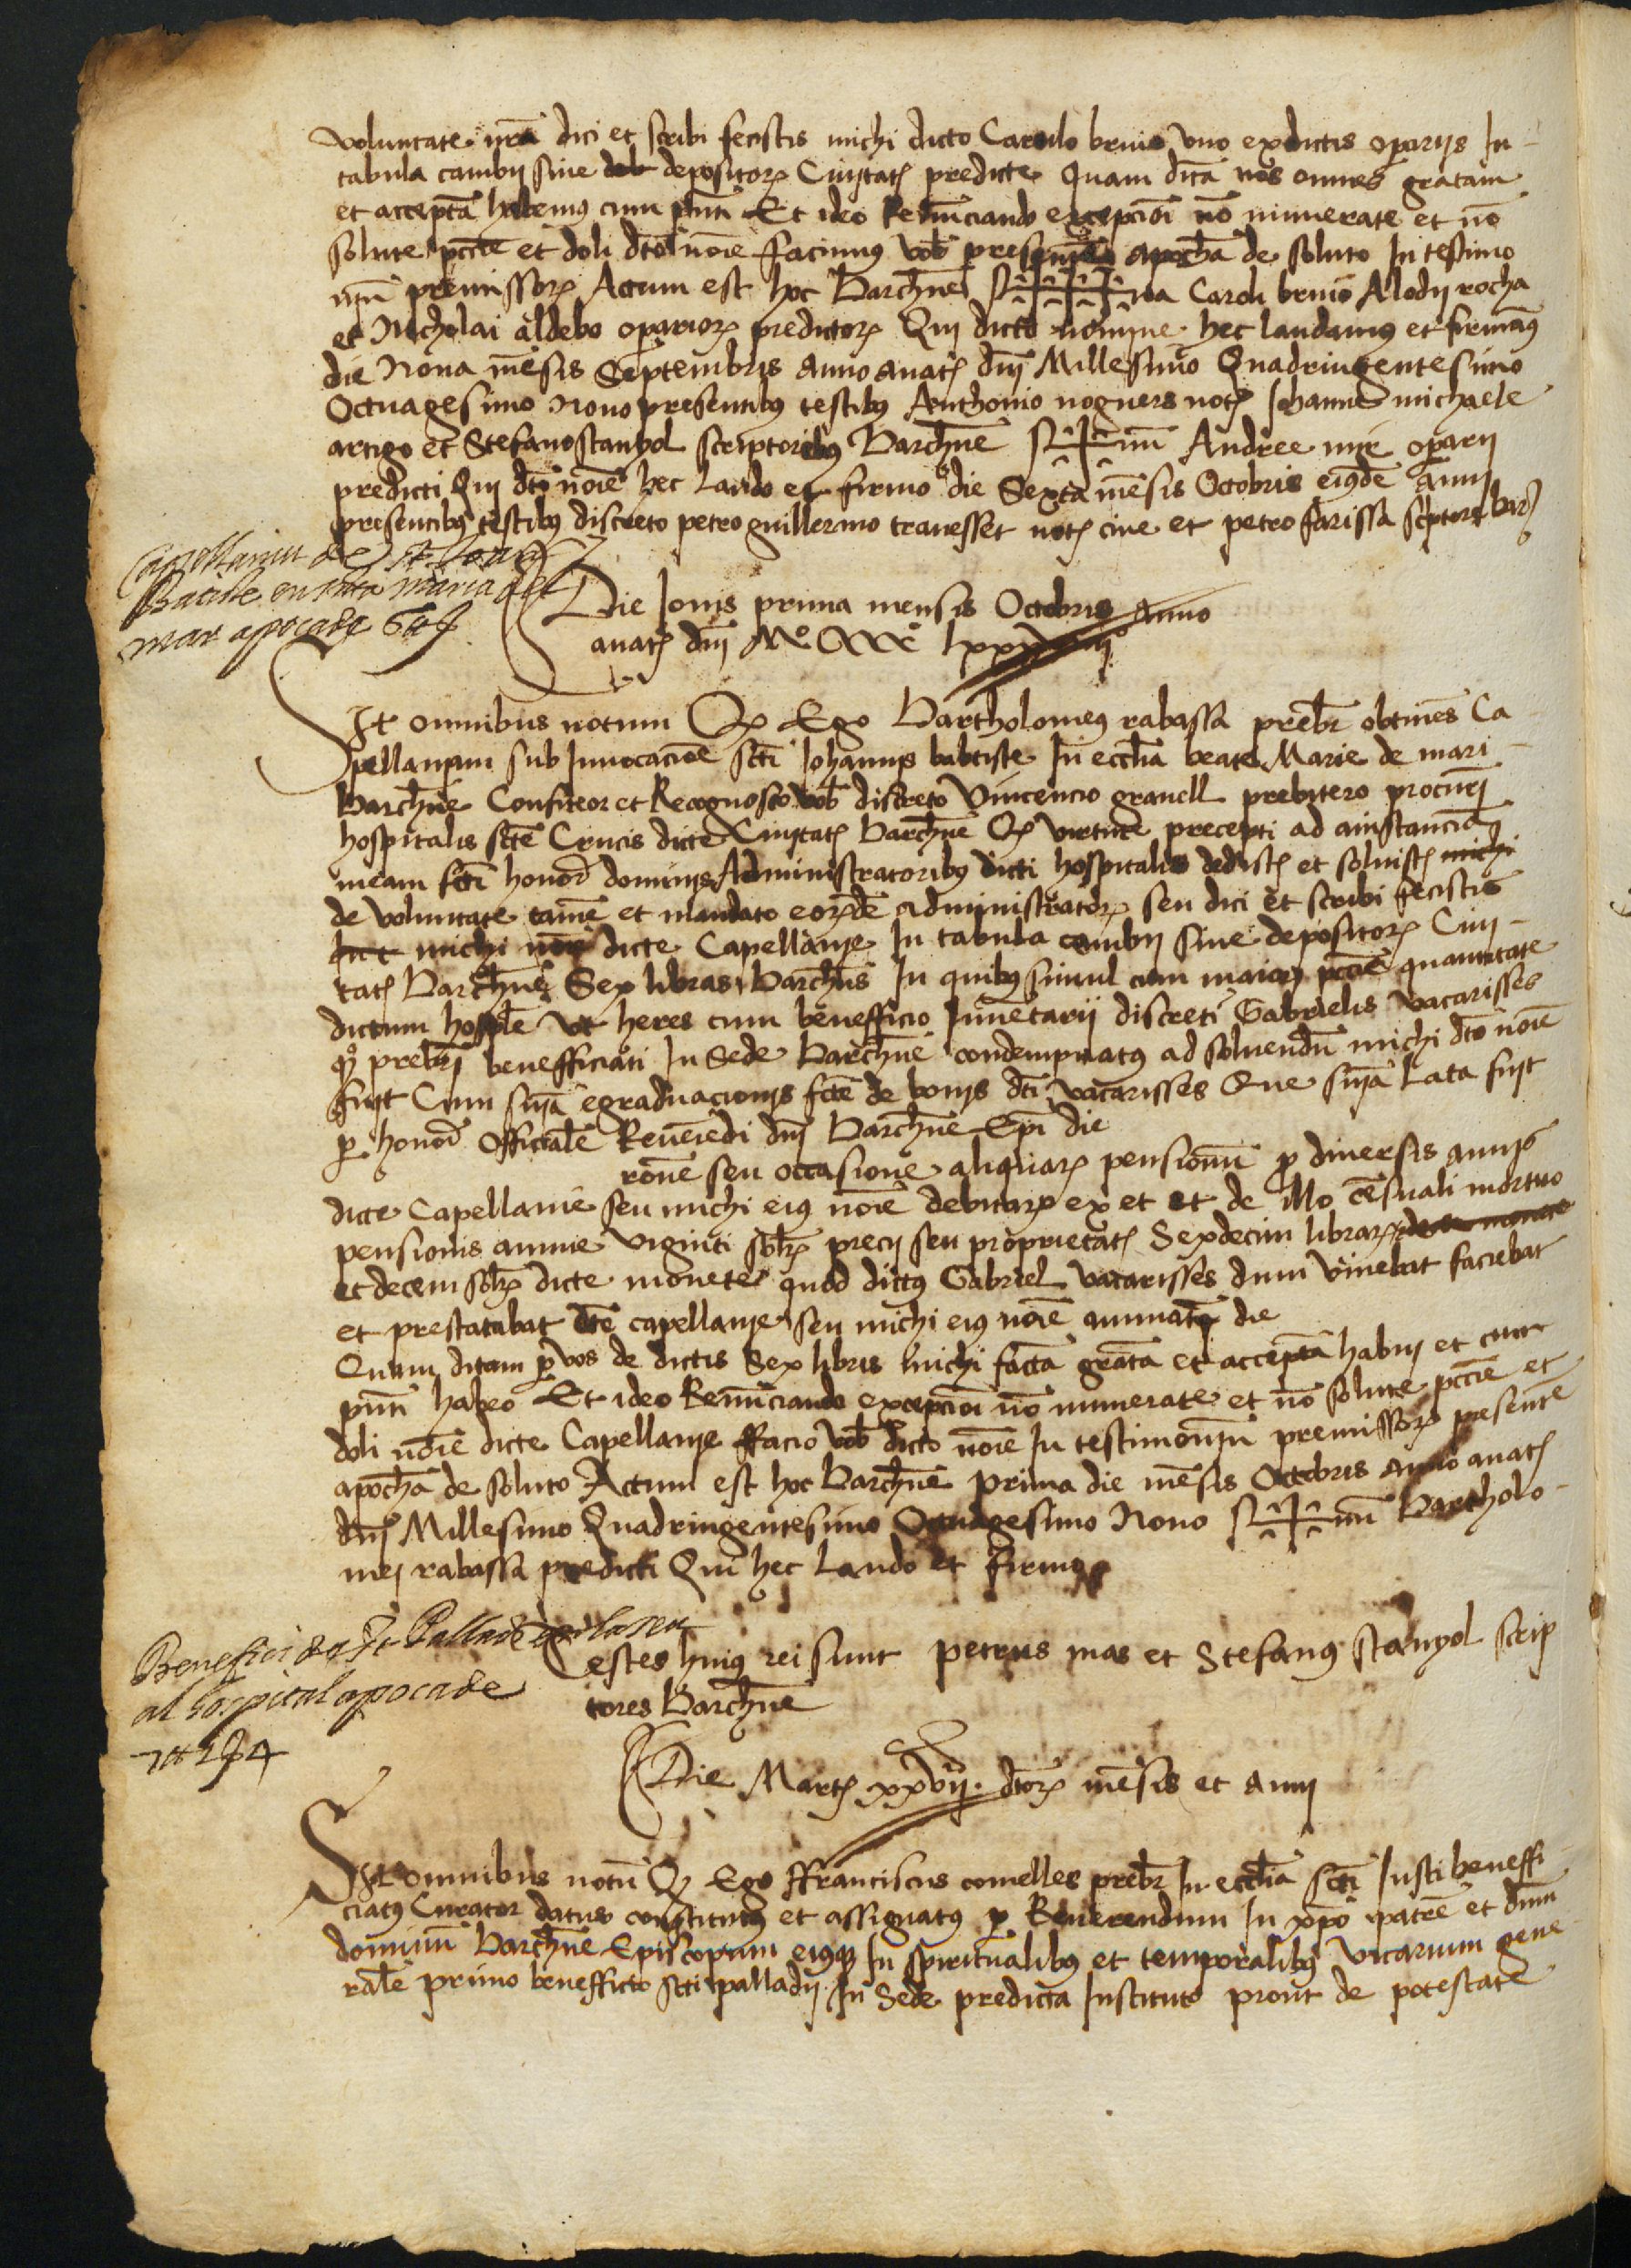 voluntate nrã dici et scribi fecistis michi dicto Carolo bruio vno ex dictis operarijs In
tabula cambij siue depositorꝝ Ciuitatꝭ predicte Quam ditã nos omnes gratam
et acceptã habemus cum pñti Et ideo Renũciando excepcioi nõ numerate et nõ
solute pccie et doli dto noie ffacimus vob presentẽ apocha de soluto In testimo
niũ premissorꝝ Actum est hoc Barchñe S++++na Caroli bruio Alodij rocha
et Nicholai aldebo operariorꝝ predictorꝝ Qui dicto nomine hec laudamus et firmamꝰ
die Nona mẽsis Septembris Anno a natꝭ dnĩ Millesimo Quadringentesimo
Octuagesimo Nono presentibus testibus Anthonio noguers notꝭ Johanne michaele
artigo et Stefano stanyol scriptoribus Barchñe S++num Andree mir operarij
predicti Qui dto noie hec Laudo et firmo die Sexta mẽsis Octobris eiusdẽ Anni
presentibus testibus discreto petro guillermo trauesset notꝭ ciue et petro farissa scptore barꝭ
Capellania de St Joan
Batiste en Sta Maria del
mar apoca de 6 ₶
Die Jouis prima mensis Octobris Anno
a natꝭ dnĩ Mº CCCCº lxxxviiijº
Sit omnibus notum Qꝫ Ego Bartholomeus rabassa prebr obtinẽs Ca
pellaniam sub Inuocacione scti Johannis babtiste In ecclia beate Marie de mari
Barchñe Confiteor et Recognosco vob discreto Vincencio granell prebitero procuri
hospitalis scte Crucis dicte Ciuitatꝭ Barchñe Qꝫ virtute precepti ad instanciã
meam fcti honorꝭ dominis Administratoribus dicti hospitalis dedistꝭ et soluistꝭ michi
de voluntate tamẽ et mandato eorꝝdẽ administratorꝝ seu dici et scribi fecistis
michi noie dicte Capellanie In tabula cambij siue depositorꝝ Ciui
tatꝭ Barchñe Sex libras Barchñs In quibus simul cum maiori pccie quantitate
dictum hosple vt heres cum benefficio Inuẽtarij discreti Gabrielis vacarisses
qº prebri benefficiati In Sede Barchñe condempnatus ad soluendũ michi dto noie
fuit Cum snĩa egraduacionis fcte de bonis dcti vacarisses Que snĩa Lata fuit
ꝑ honorꝭ Officialẽ Reuerẽdi dnĩ Barchñe Epĩ die
rone seu occasione aliquarꝝ pensionũ ꝓ diuersis annis
dicte Capellanie seu michi eius noie debitarꝝ ex et de illo cẽsuali mortuo
pensionis annue viginti solꝝ precij seu proprietatꝭ Sexdecim librarꝝ
et decem solꝝ dicte monete quod dictus Gabriel vacarisses dum viuebat faciebat
et prestatabat dte capellanie seu michi eius noie annuatĩ die
Quam ditam ꝑ vos de dictis Sex libris michi factã gratã et acceptã habui et cum
pñti habeo Et ideo Renũciando excepcioi nõ numerate et nõ solute pccie et
doli noie dicte Capellanie ffacio vob dicto noie In testimoniũ premissorꝝ presentẽ
apochã de soluto Actum est hoc Barchñe prima die mẽsis Octobris Anno a natꝭ
dnĩ Millesimo Quadringentesimo Octuagesimo Nono S++num Bartholo
mei rabassa predicti Qui hec Laudo et firmo
Benefici de St Palladi en la seu
al hospital apoca de
Testes huius rei sunt petrus mas et Stefanus stanyol scrip
tores Barchñe
Die Martꝭ xxvij dctorꝝ mẽsis et Anni
Sit omnibus notũ Qꝫ Ego ffranciscus comelles prebr In ecclia scti Justi beneffi
ciatus Curator datus constitutus et assignatus ꝑ Reuerendum In xpo patrẽ et dnm
dominũ Barchñe Episcopum eiusqꝫ In spiritualibus et temporalibus vicarium gene
ralẽ primo benefficio scti palladij In Sede predicta Instituto prout de potestate